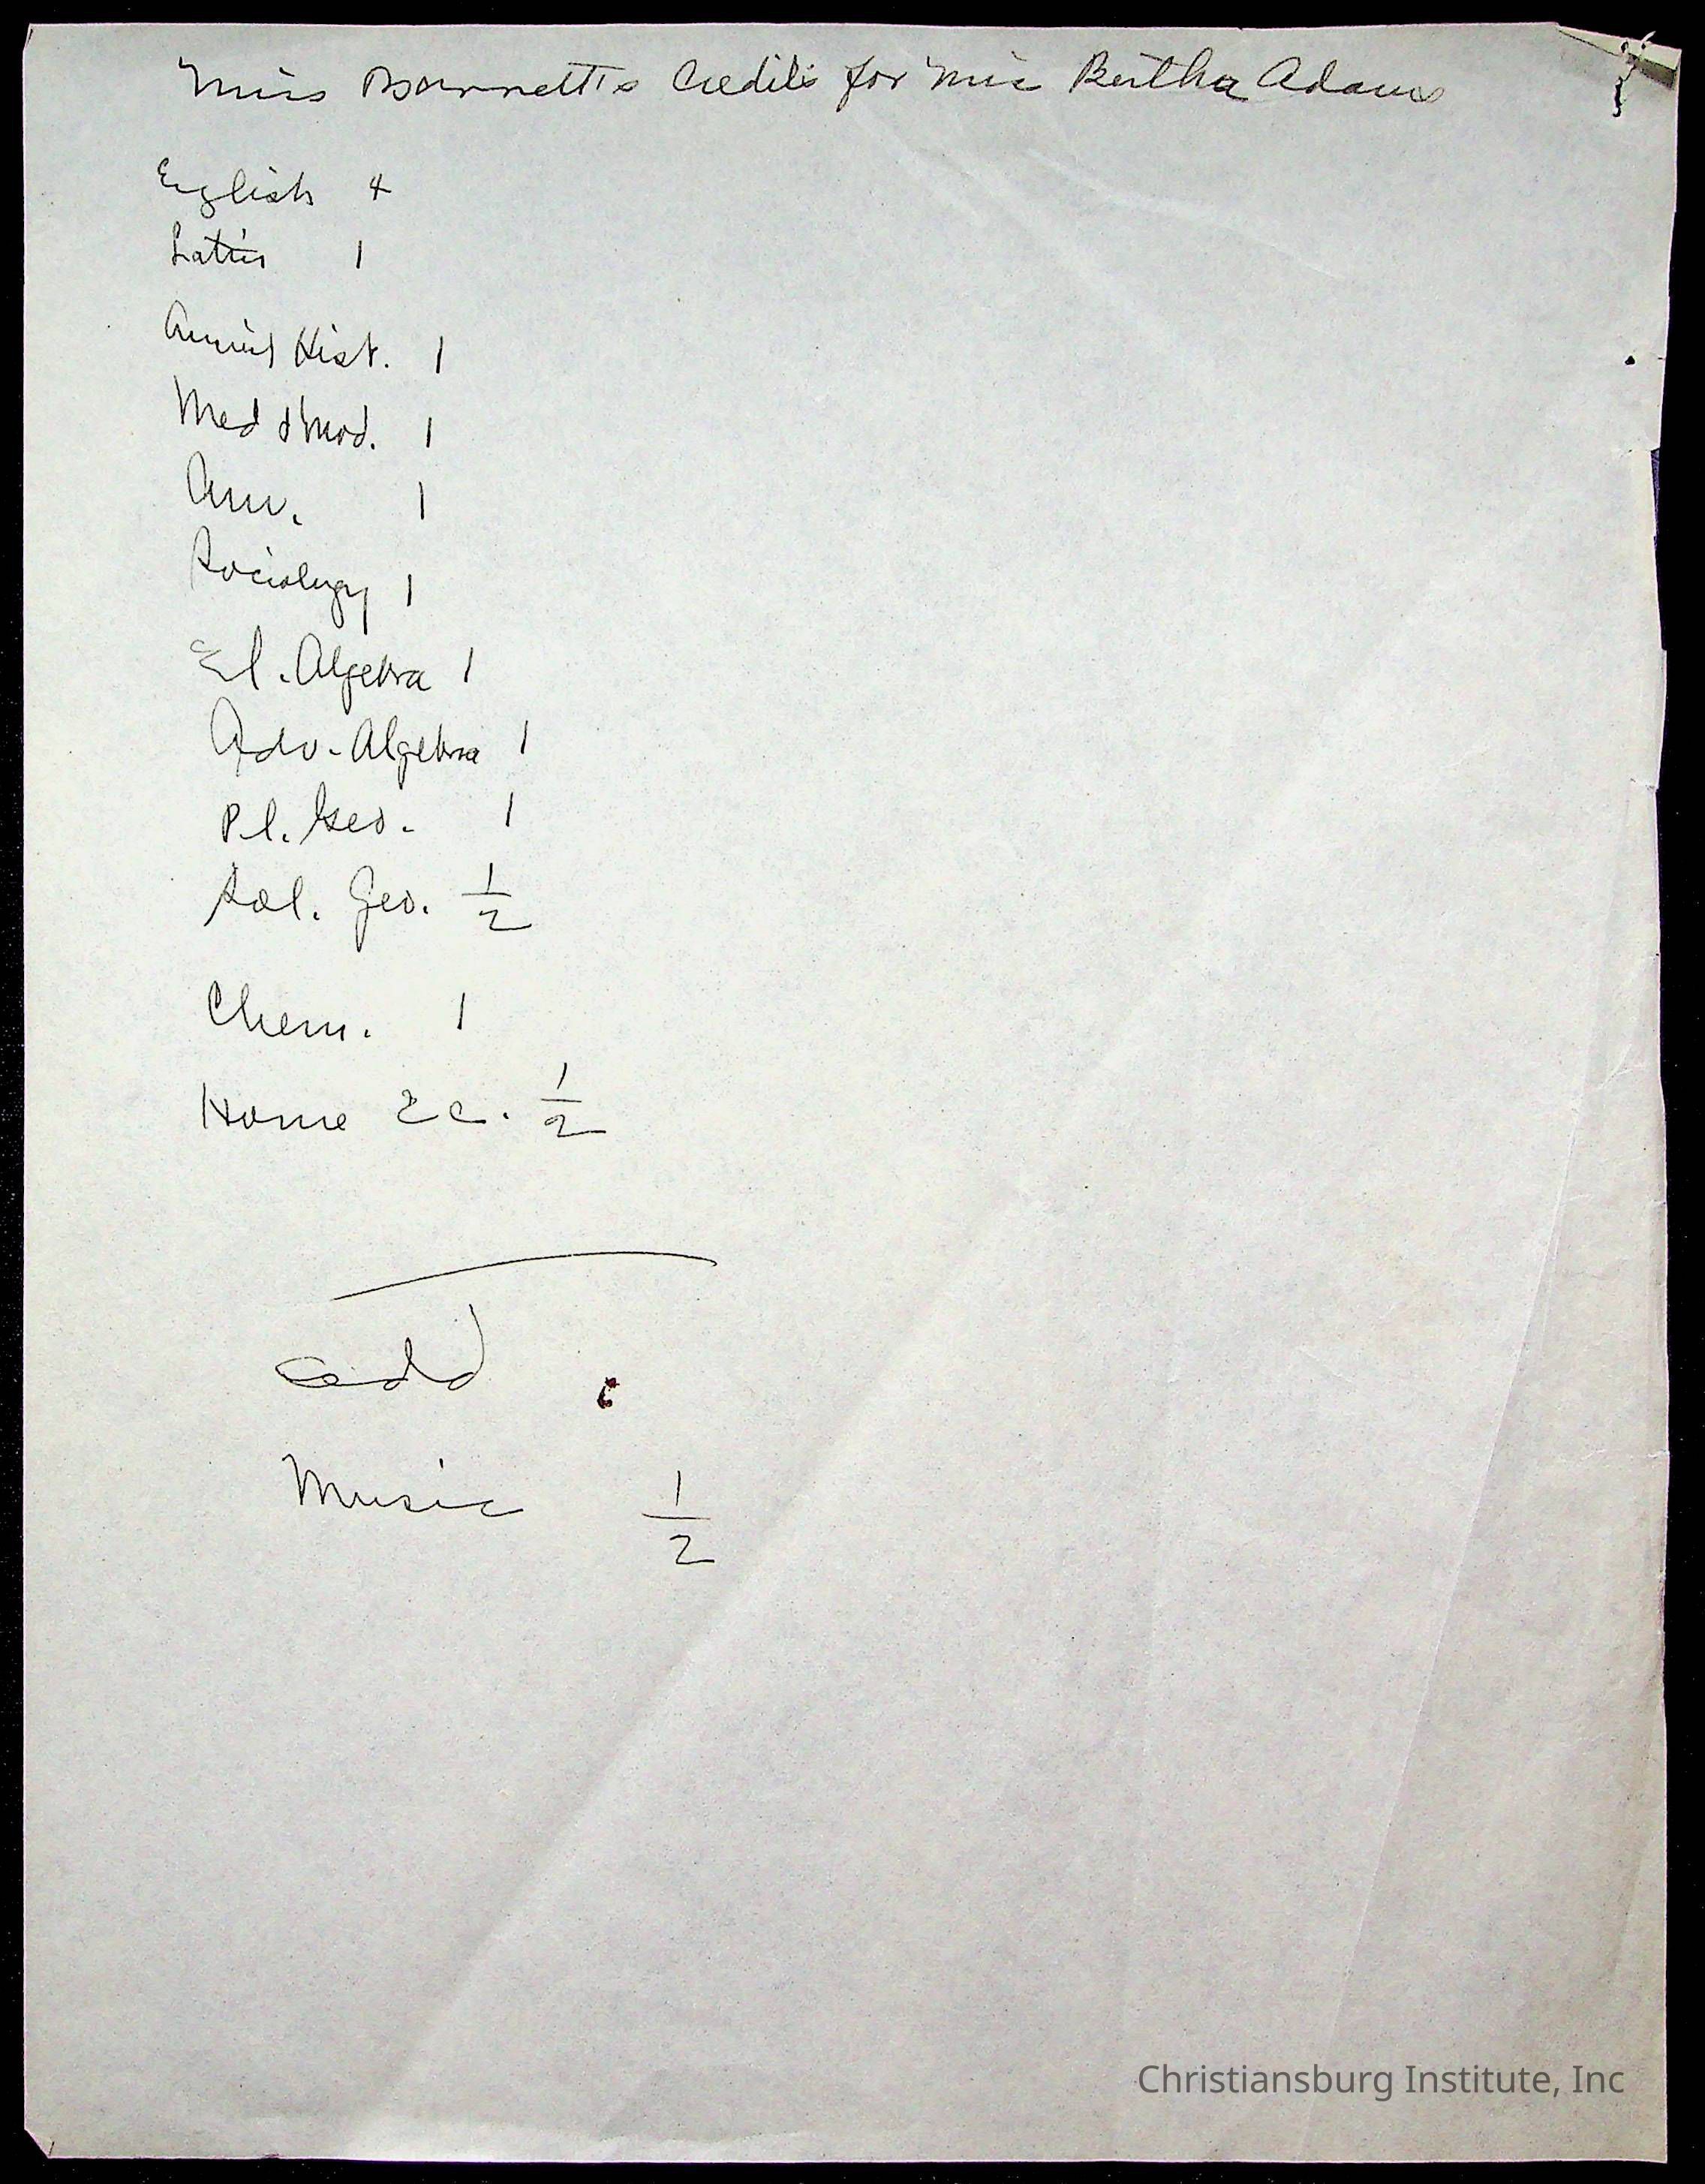 Miss Barnett's Credits for Miss Bertha Adams
English 4
Lattin 1
Hist. 1
Med & Mod. 1
Am. 1
Sociology 1
El. Algebra 1
Adv. Algebra 1
Pl. Geo. 1
Sol. Geo. 1/2
Chem. 1
Home Ec. 1/2
add
Music 1/2
Christiansburg Institute, Inc